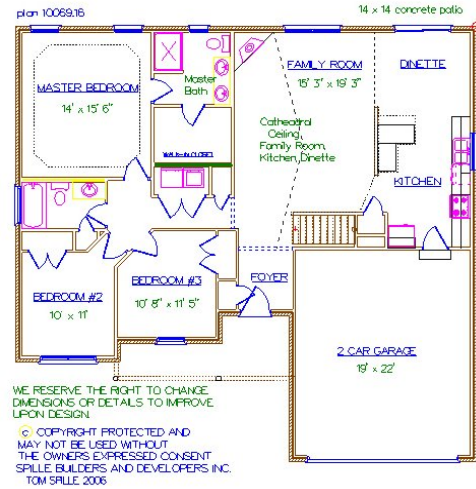 plan 10069.16
14 x 14 concrete patio
MASTER BEDROOM
14' x 15' 6"
Master
Bath
FAMILY ROOM
15' 3" x 19' 3"
DINETTE
Cathedral
Ceiling
Family Room,
Kitchen, Dinette
WALK-IN CLOSET
KITCHEN
BEDROOM #2
10' x 11'
BEDROOM #3
10' 8" x 11' 5"
FOYER
2 CAR GARAGE
19' x 22'
WE RESERVE THE RIGHT TO CHANGE
DIMENSIONS OR DETAILS TO IMPROVE
UPON DESIGN.
c COPYRIGHT PROTECTED AND
MAY NOT BE USED WITHOUT
THE OWNERS EXPRESSED CONSENT
SPILLE BUILDERS AND DEVELOPERS INC.
TOM SPILLE 2006